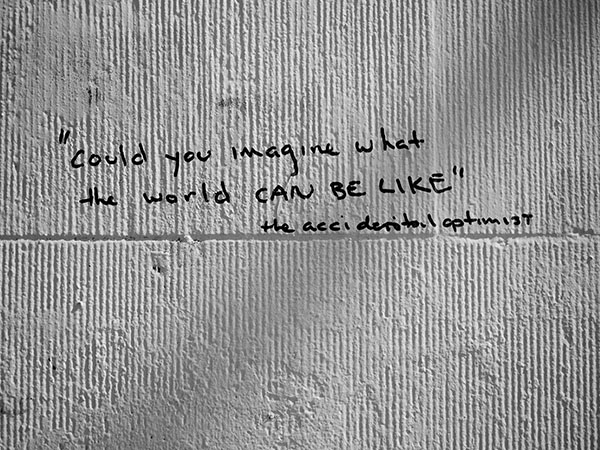 "Could you imagine what
the world CAN BE LIKE"
the accidental optimist